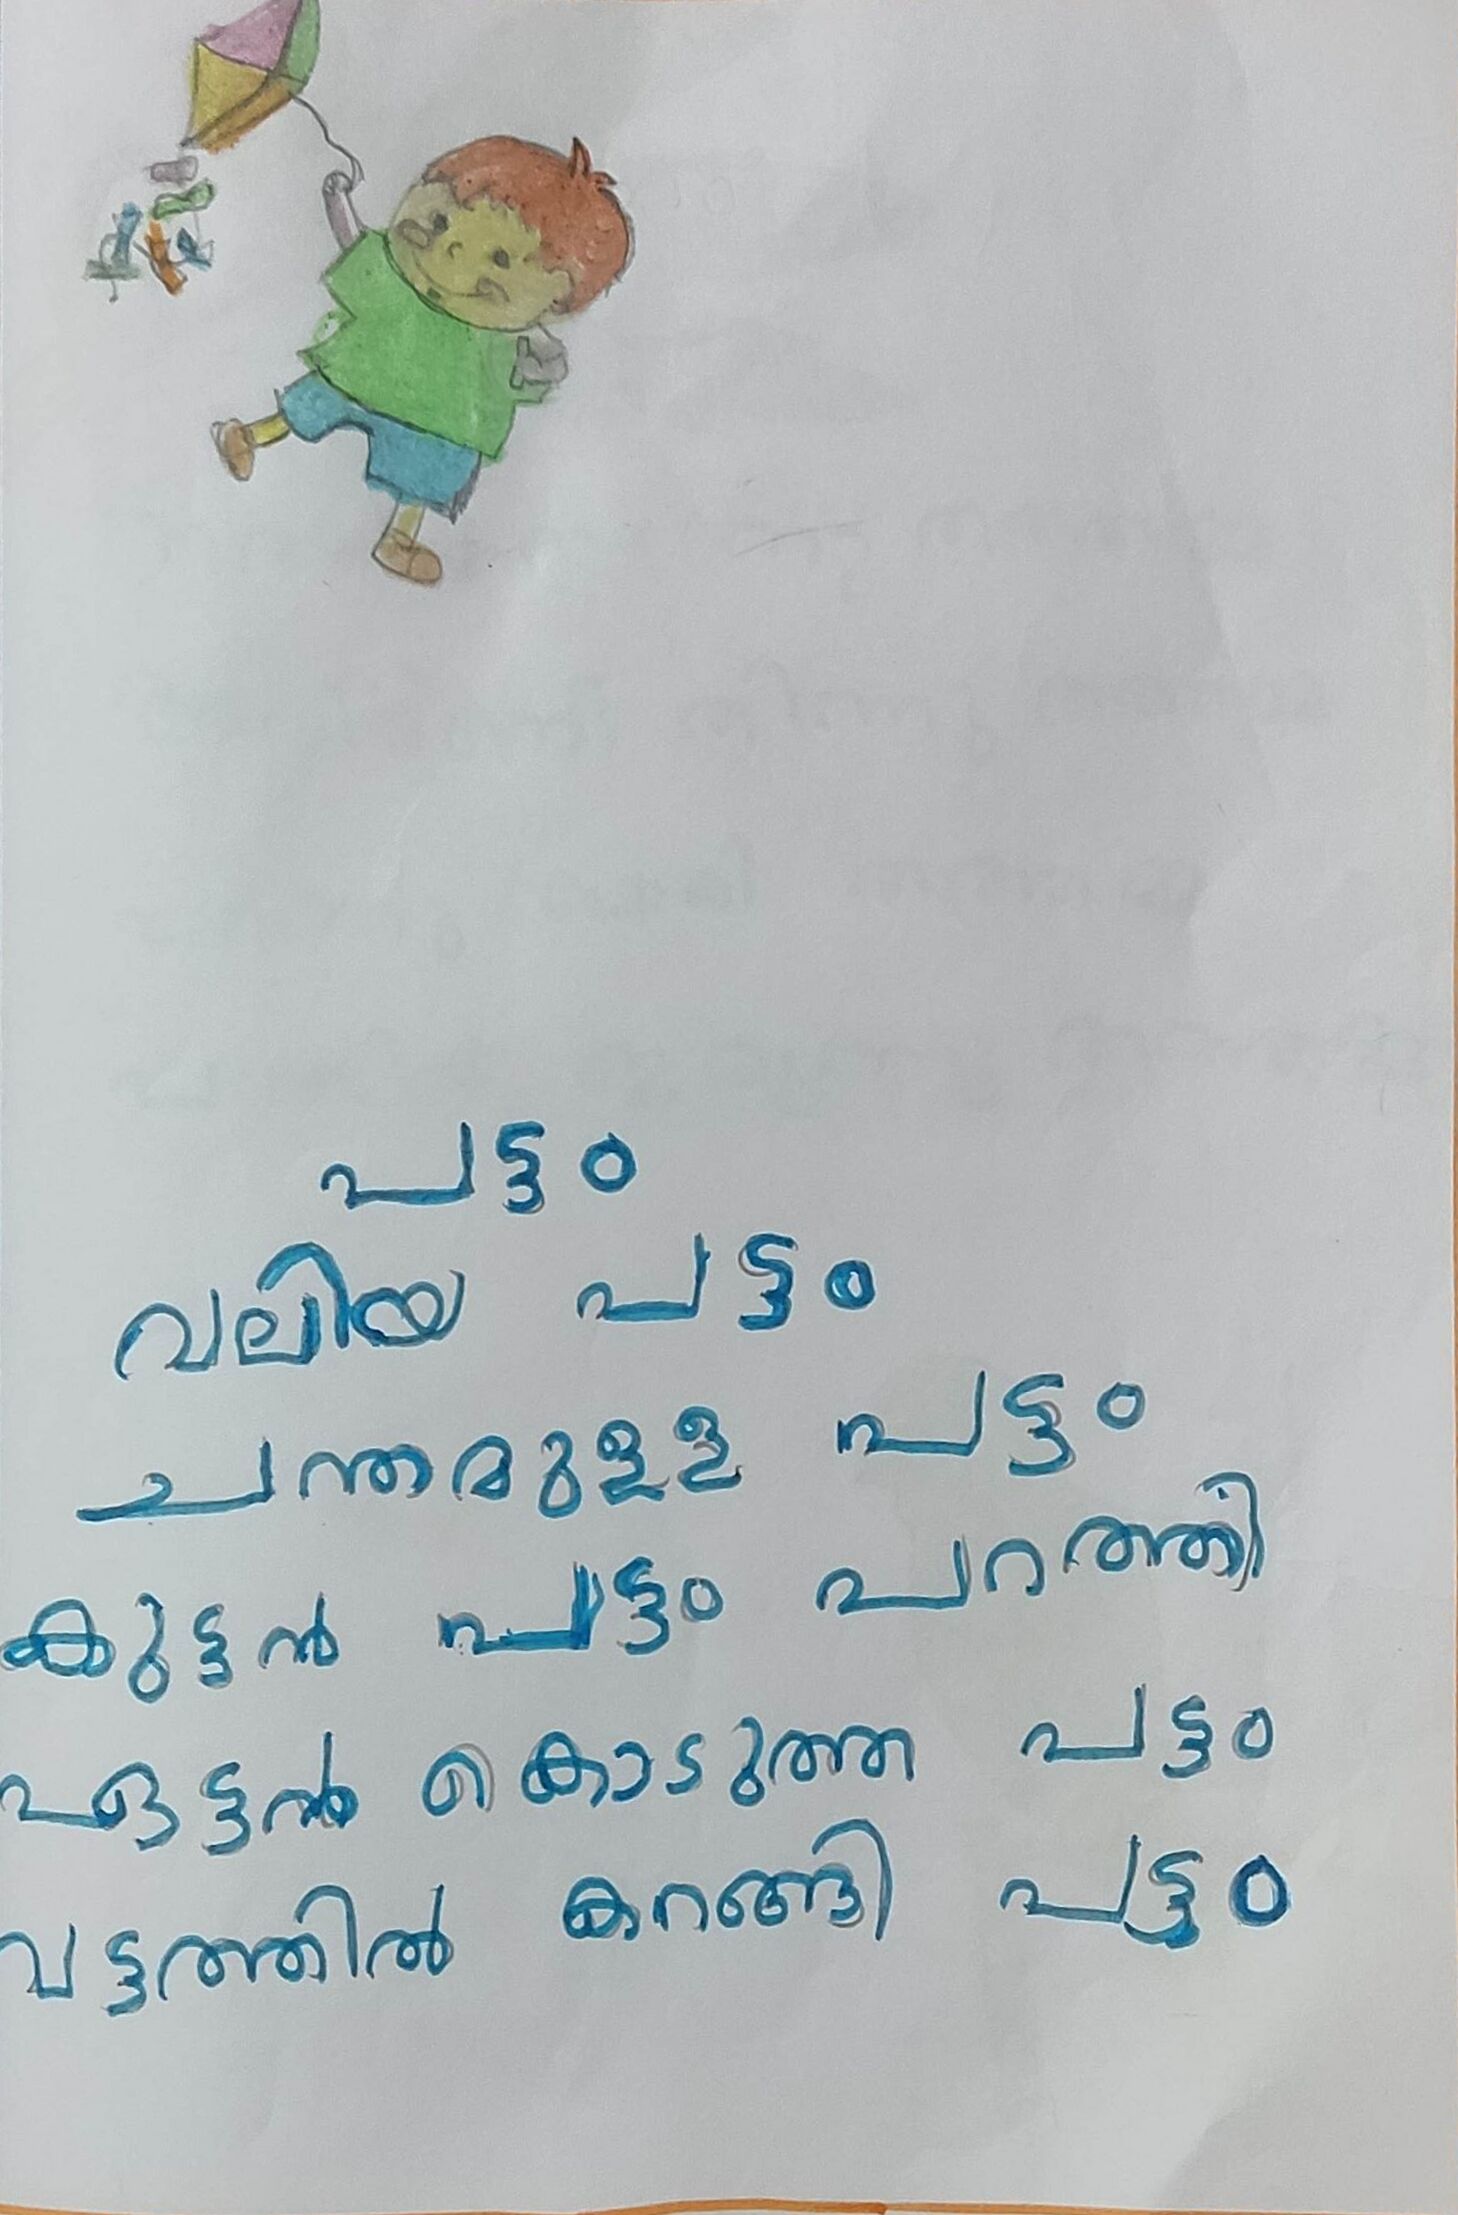 പട്ടം
വലിയ പട്ടം
ചന്തമുള്ള പട്ടം
കുട്ടൻ പട്ടം പറത്തി
ഏട്ടൻ കൊടുത്ത പട്ടം
വട്ടത്തിൽ കറങ്ങി പട്ടം